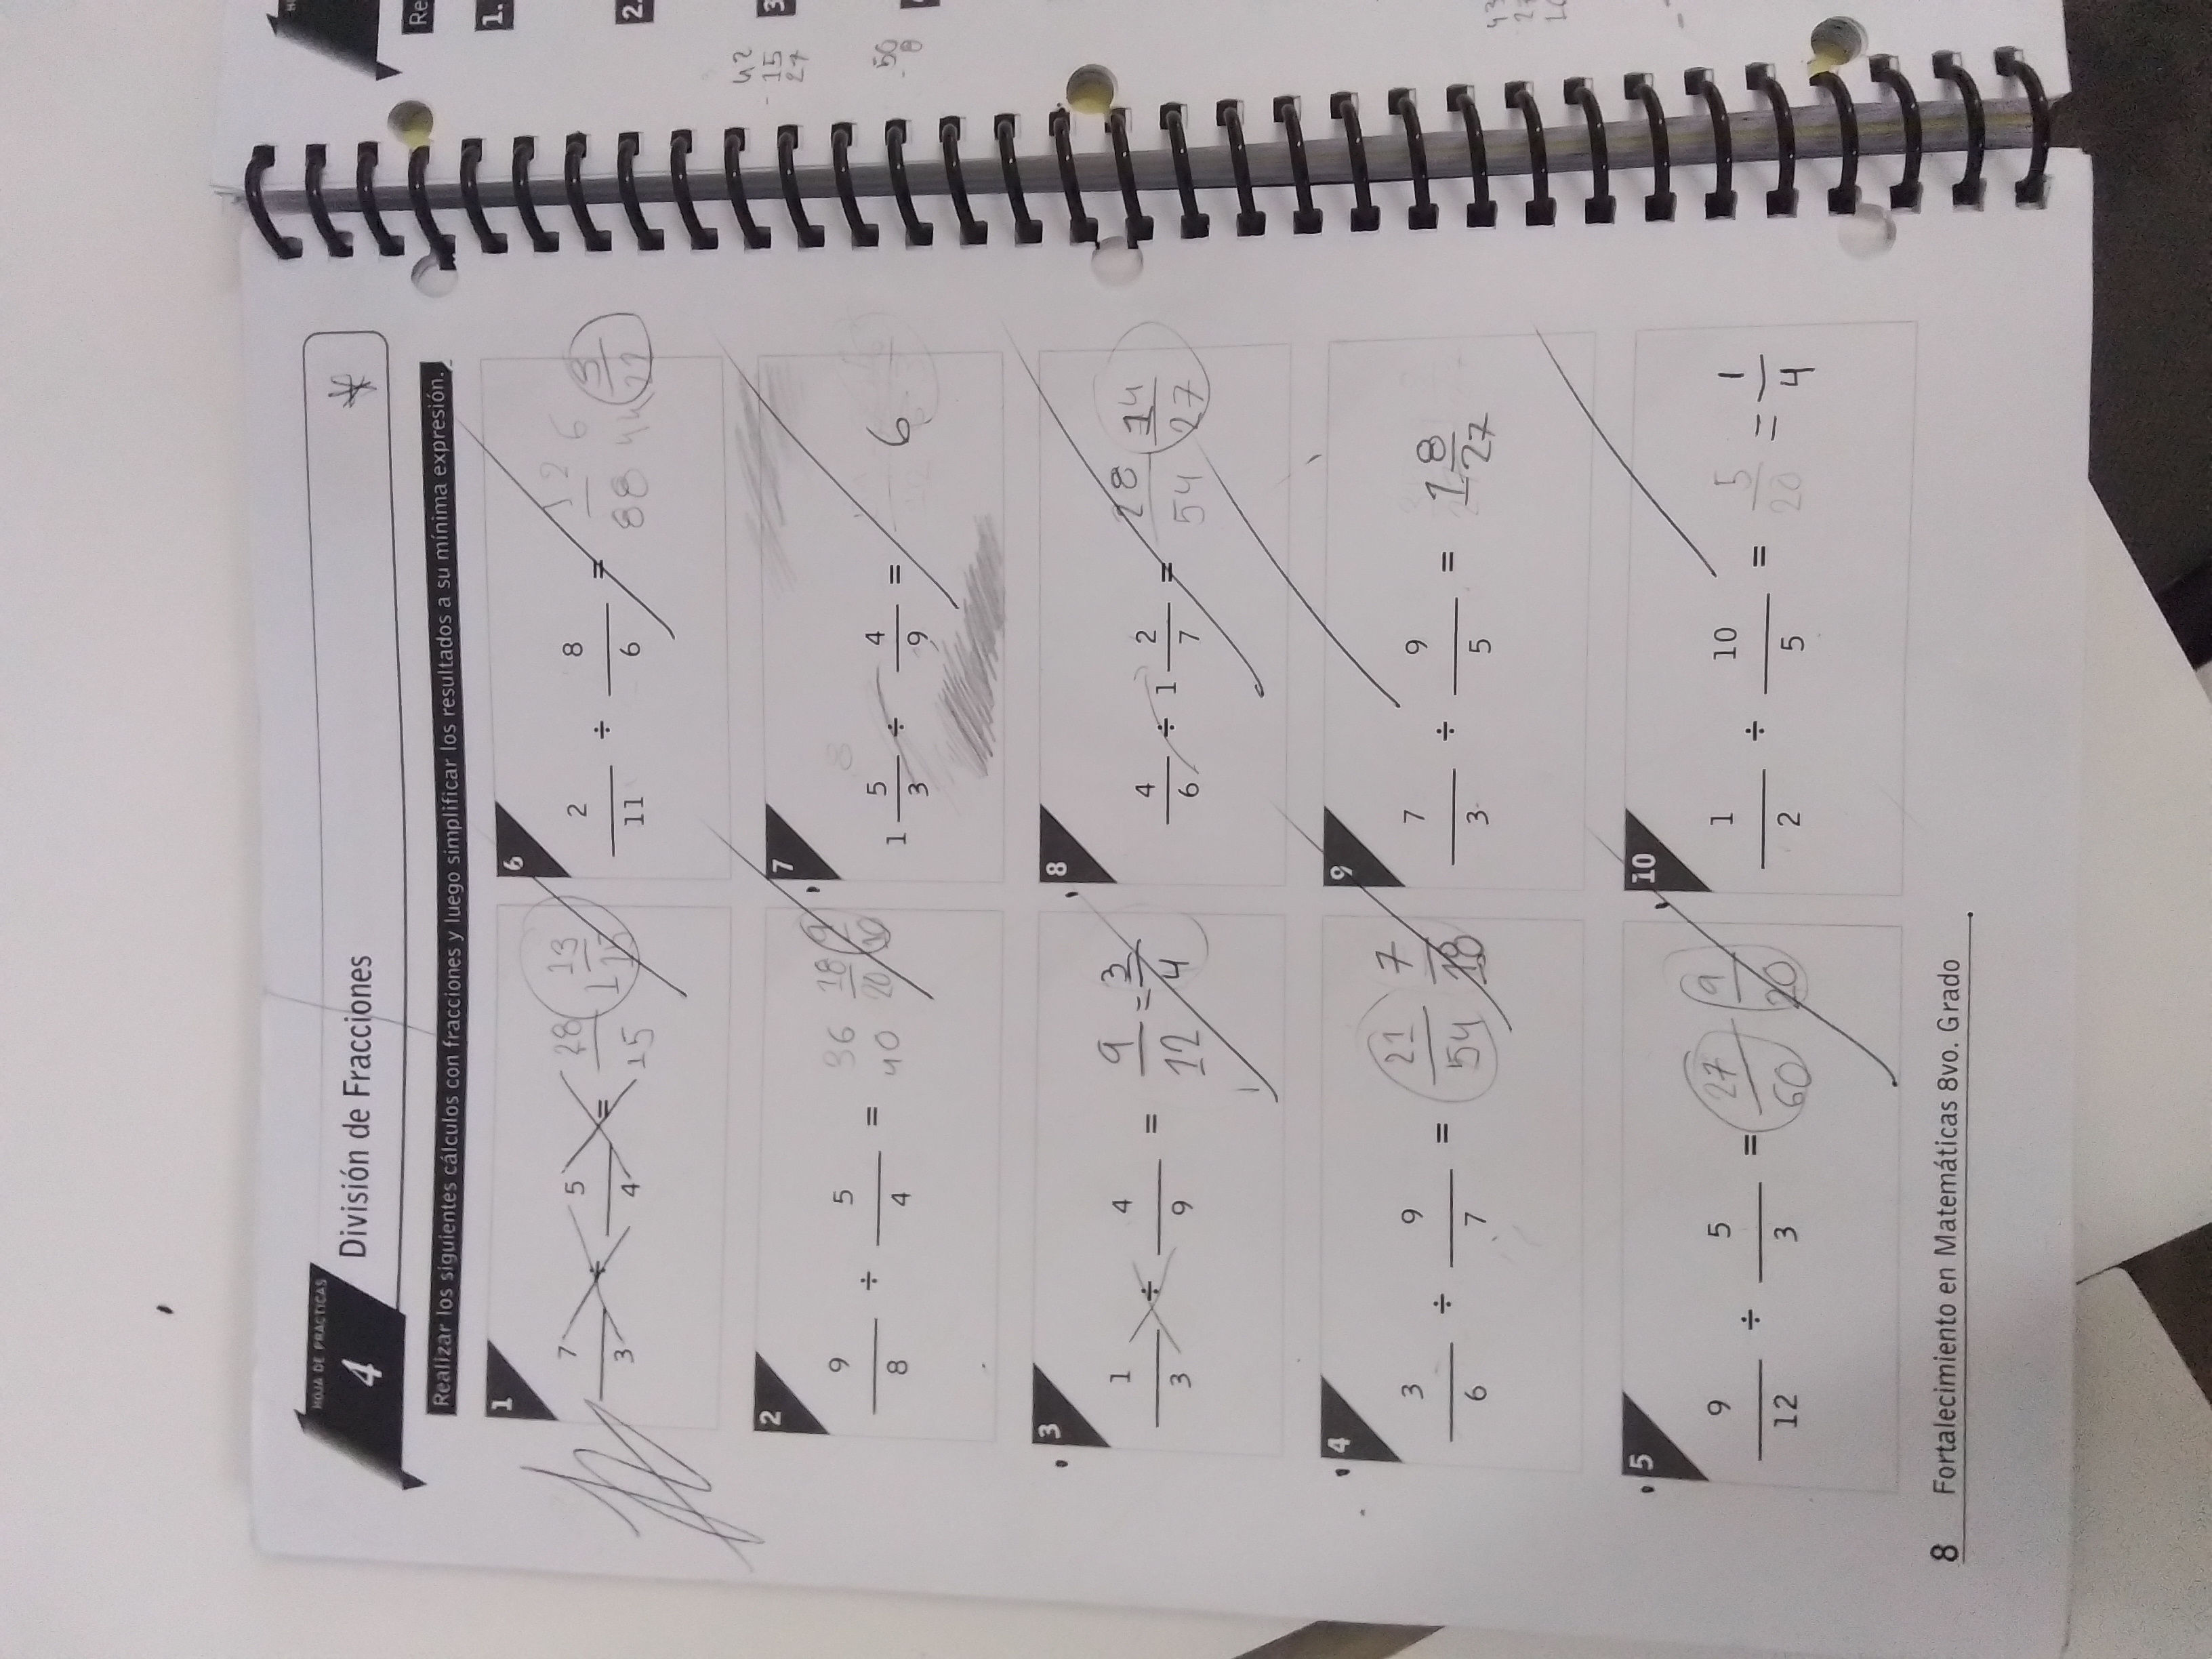 HOJA DE PRÁCTICAS
4
División de Fracciones
*
Realizar los siguientes cálculos con fracciones y luego simplificar los resultados a su mínima expresión.
1
7/3 ÷ 5/4 = 28/15 1 13/15
2
9/8 ÷ 5/4 = 36/40 18/20 9/10
3
1/3 ÷ 4/9 = 9/12 = 3/4
4
3/6 ÷ 9/7 = 21/54 7/18
5
9/12 ÷ 5/3 = 27/60 9/20
6
2/11 ÷ 8/6 = 12/88 6/44 3/22
7
1 5/3 ÷ 4/9 = 6
8
4/6 ÷ 1 2/7 = 28/54 14/27
9
7/3 ÷ 9/5 = 1 8/27
10
1/2 ÷ 10/5 = 5/20 = 1/4
8 Fortalecimiento en Matemáticas 8vo. Grado
Re
1.
2.
3
- 42
15
27
50
8